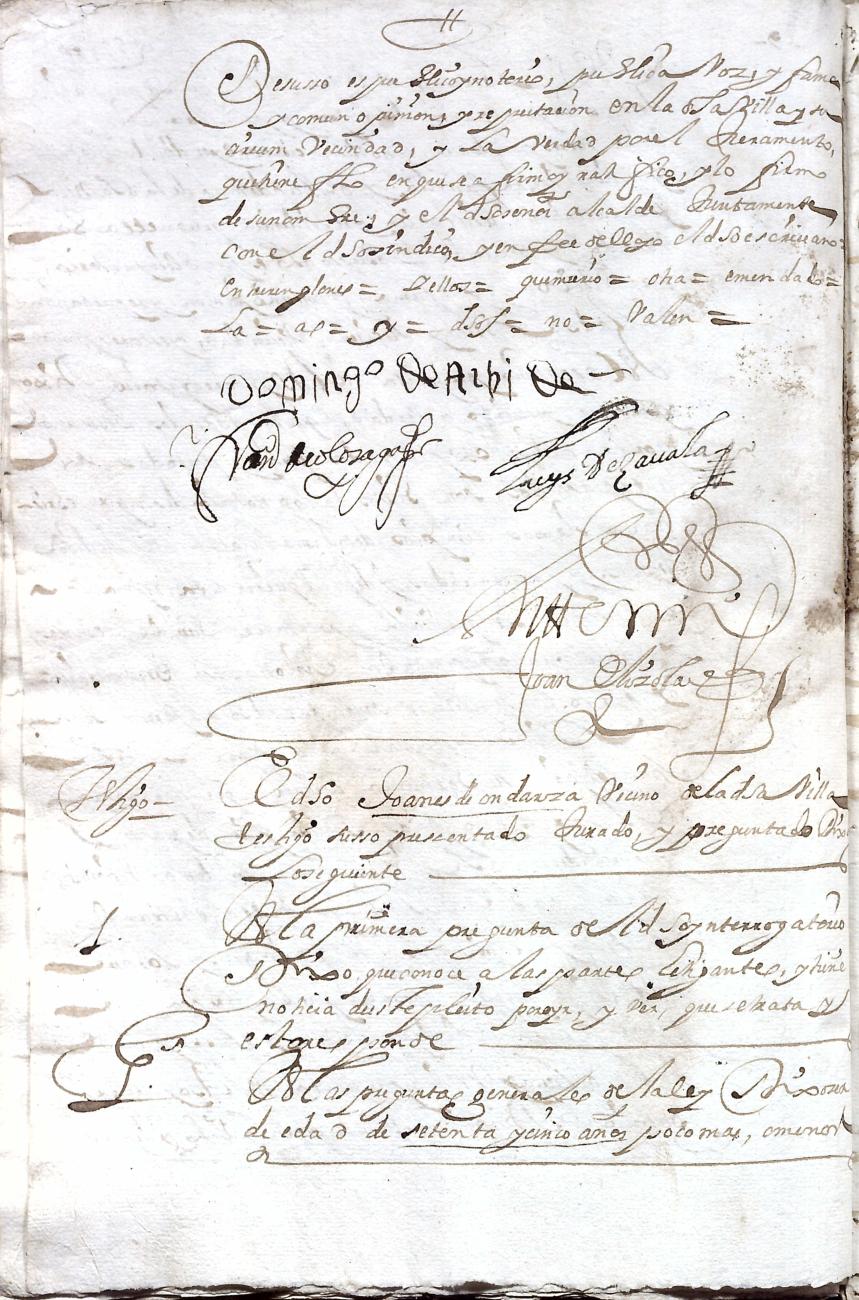 De susso es publico y notorio, publica voz, y fama
y comun opinion, y reputacion en la dha Villa y su
circum Vecindad, y la verdad por el Juramento,
que tiene fho en que se afirmo y ratifico, y lo firmo
de su nombre, y el dho señor alcalde Juntamente
con el dho sindico, y en fee dello yo el dho escrivano
Entre renglones = dellos = que murio = otra = emendado =
La = as = y = dhos = no = Valen =
Domingo De Arbide
Juan de olozaga
Luys De Çavala
Ante mi
Joan Elizalde
Testigo
El dho Joanes de ondarza Vecino de la dha Villa
testigo susso presentado Jurado, y preguntado Dixo
Lo siguiente
1. A la primera pregunta del dho ynterrogatorio
Dixo que conoce a las partes litigantes, y tiene
noticia deste pleito por oyr, y ver, que se trata y
esto responde
Gs
A las preguntas generales de la ley Dixo ser
de edad de setenta y cinco años poco mas, o menos